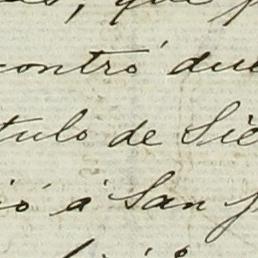 , que
contró due
tulo de Sie
ió á San